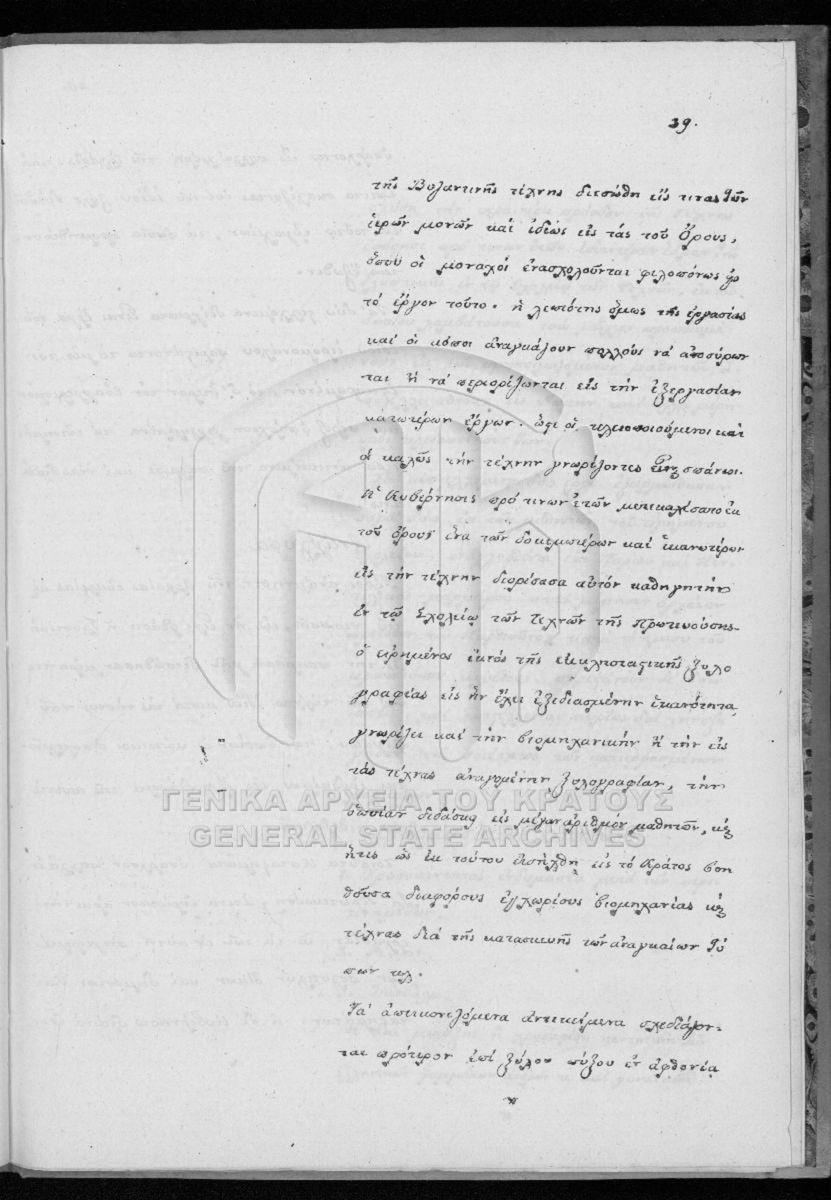 39.
τῆς Βυζαντινῆς τέχνης διεσώθη εἴς τινας τῶν
ἱερῶν μονῶν καὶ ἰδίως εἰς τὰς τοῦ Ὄρους,
ὅπου οἱ μοναχοὶ ἐνασχολοῦνται φιλοπόνως εἰς
τὸ ἔργον τοῦτο. ἡ λεπτότης ὅμως τῆς ἐργασίας
καὶ οἱ κόποι ἀναγκάζουν πολλοὺς νὰ ἀποσύρων
ται ἢ νὰ περιορίζωνται εἰς τὴν ἐξεργασίαν
κατωτέρων ἔργων. οἱ τελειοποιούμενοι καὶ
οἱ καλῶς τὴν τέχνην γνωρίζοντες σπάνιοι.
Ἡ Κυβέρνησις πρό τινων ἐτῶν μετεκαλέσατο ἐκ
τοῦ Ὄρους ἕνα τῶν δοκιμωτέρων καὶ ἱκανωτέρων
εἰς τὴν τέχνην διορίσασα αὐτὸν καθηγητὴν
ἐν τῷ Σχολείῳ τῶν Τεχνῶν τῆς Πρωτευούσης.
ὁ εἰρημένος ἐκτὸς τῆς ἐκκλησιαστικῆς ξυλο
γραφίας εἰς ἣν ἔχει ἐξειδιασμένην ἱκανότητα,
γνωρίζει καὶ τὴν βιομηχανικὴν ἢ τὴν εἰς
τὰς τέχνας ἀναγομένην ξυλογραφίαν, τὴν
ὁποίαν διδάσκει εἰς μέγαν ἀριθμὸν μαθητῶν, καὶ
ἥτις ὡς ἐκ τούτου εἰσήχθη εἰς τὸ Κράτος βοη
θοῦσα διαφόρους ἐγχωρίους βιομηχανίας καὶ
τέχνας διὰ τῆς κατασκευῆς τῶν ἀναγκαίων τύ
πων κτλ.
Τὰ ἀπεικονιζόμενα ἀντικείμενα σχεδιάζον-
ται πρότερον ἐπὶ ξύλου πύξου ἐν ἀφθονίᾳ
ΓΕΝΙΚΑ ΑΡΧΕΙΑ ΤΟΥ ΚΡΑΤΟΥΣ
GENERAL STATE ARCHIVES